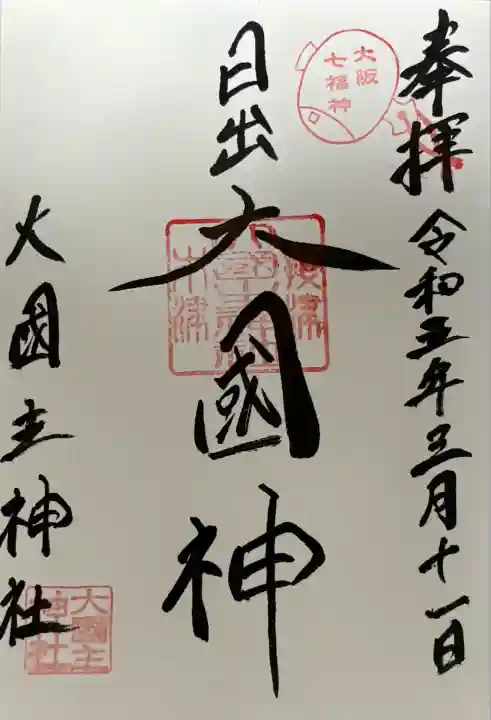 奉拝 令和五年三月十一日
大阪
七福神
日出大國神
大國主神社
大國主
神社